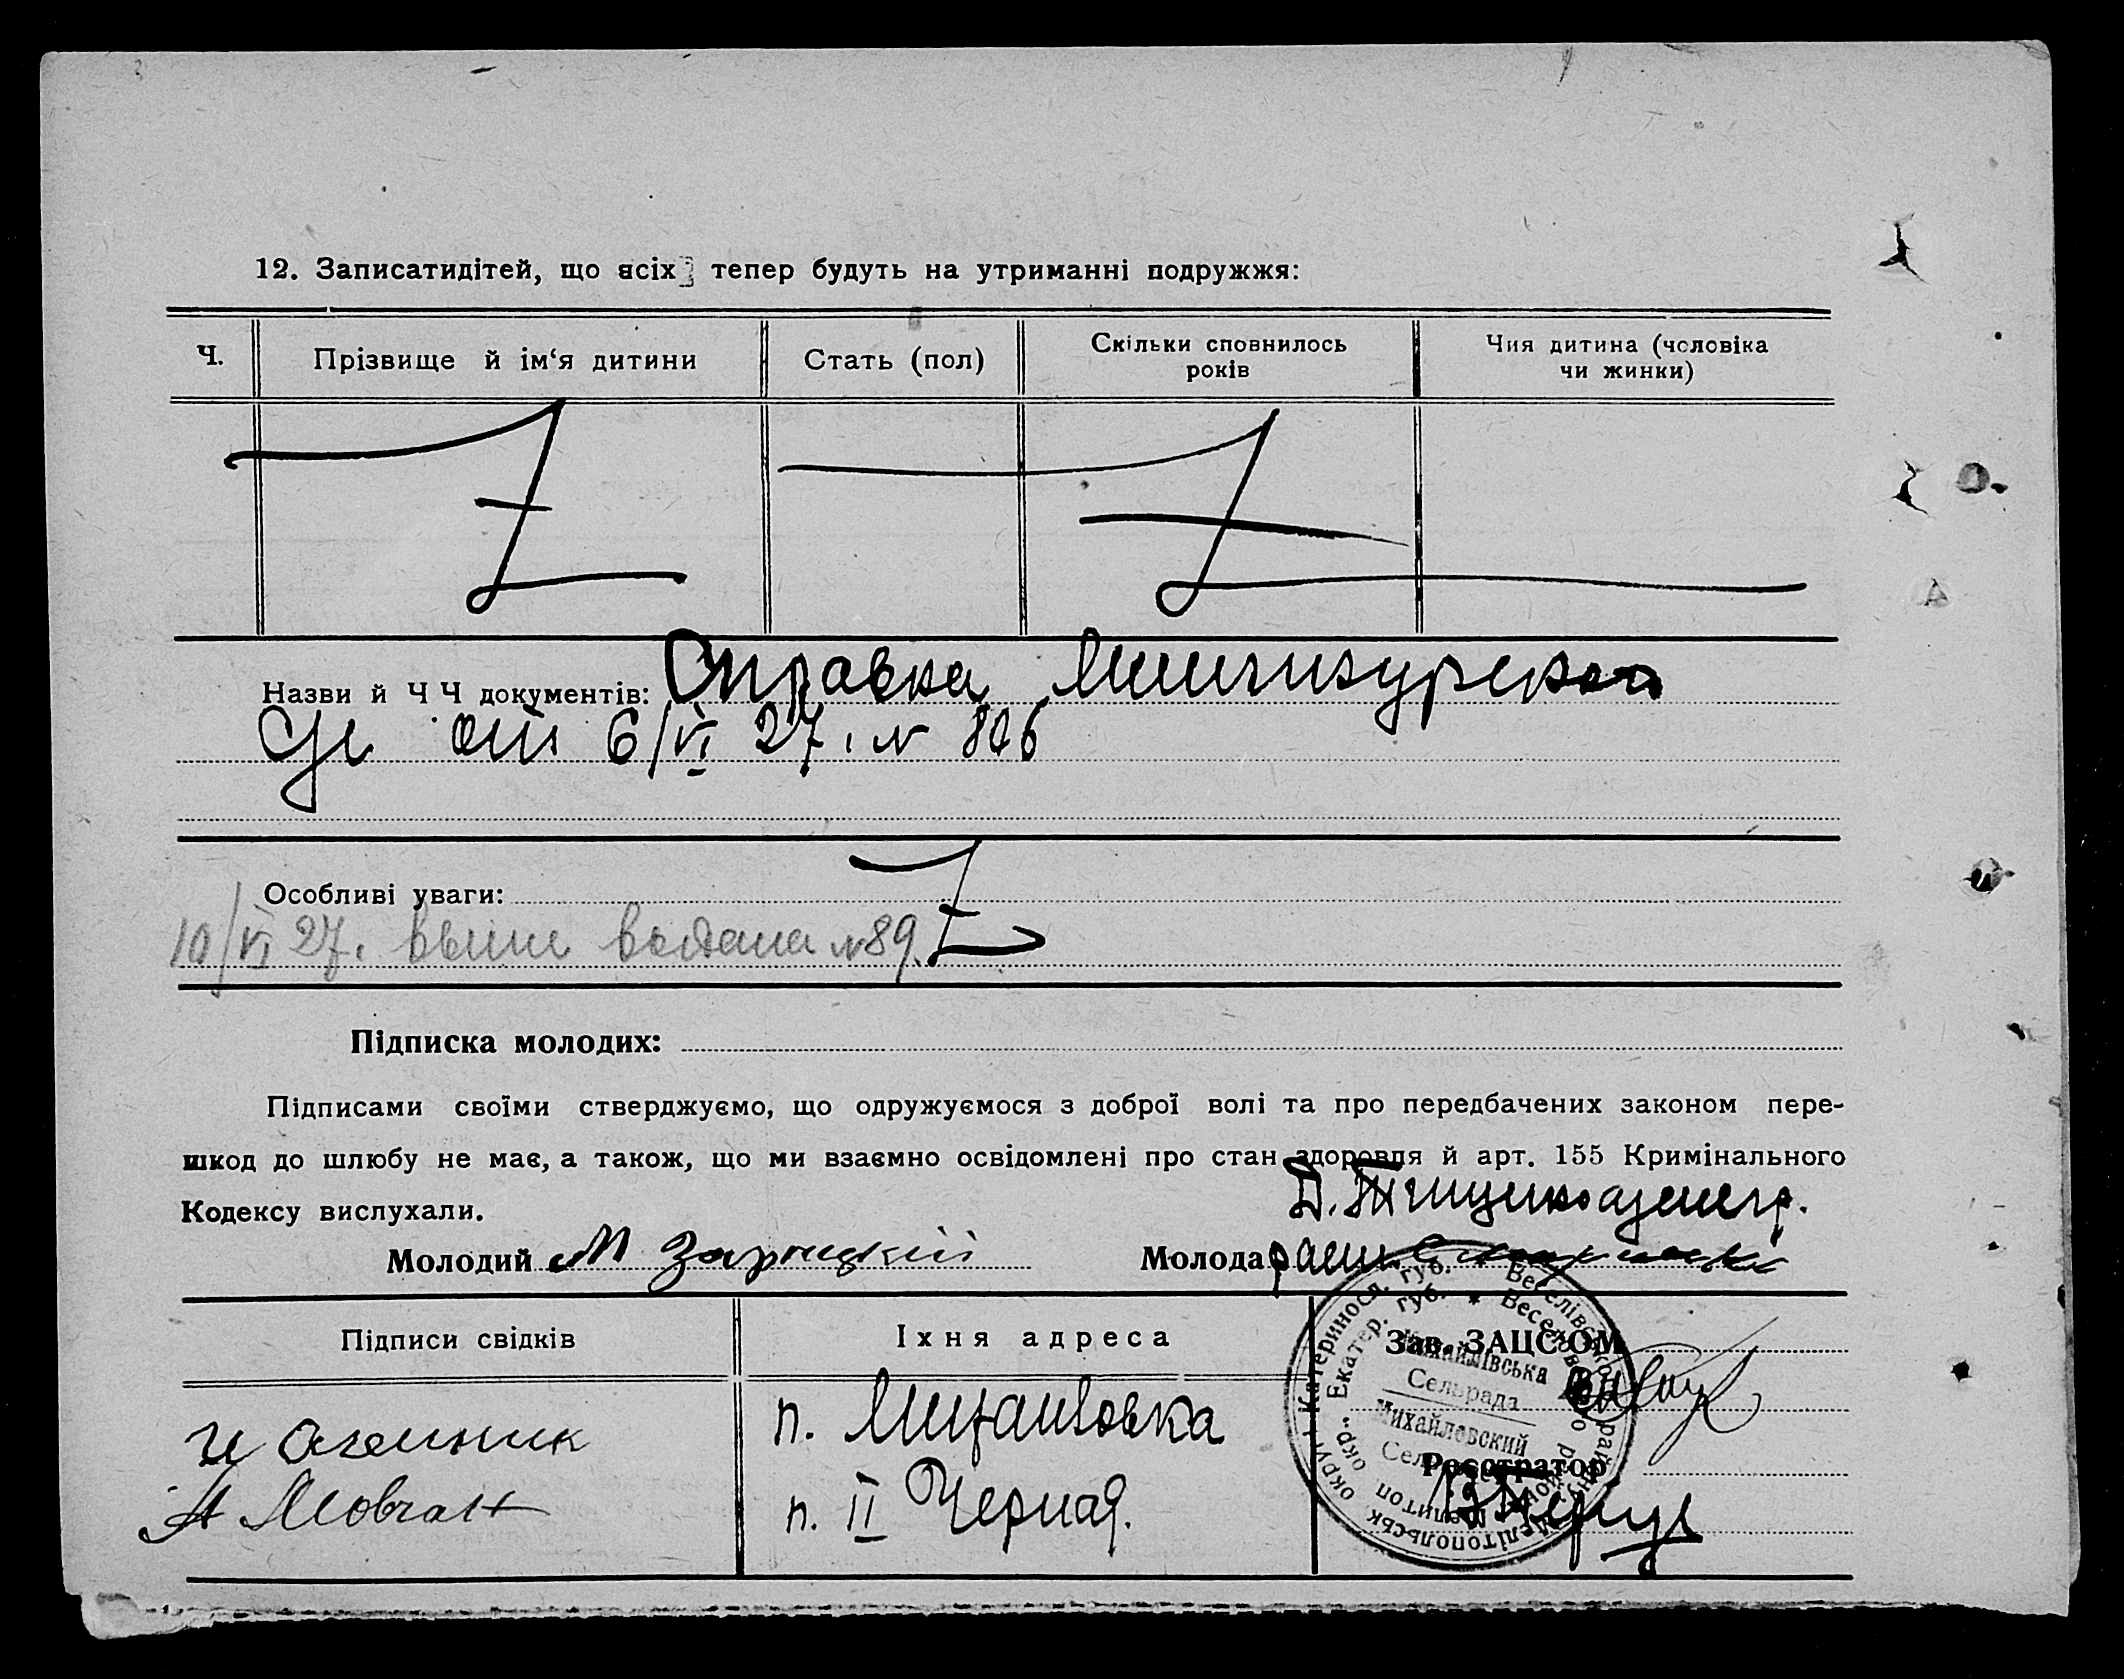 12. Записатидітей, що всіх тепер будуть на утриманні подружжя:
Ч.
Прізвище й ім‘я дитини
Стать (пол)
Скільки сповнилось
років
Чия дитина (чоловіка
чи жинки)
Назви й Ч Ч документів: Справка
от 6/VI 27. №
Особливі уваги:
10/VI 27. выпис выдана №89.
Підписка молодих:
Підписами своїми стверджуємо, що одружуємося з доброї волі та про передбачених законом пере-
шкод до шлюбу не має, а також, що ми взаємно освідомлені про стан здоровля й арт. 155 Кримінального
Кодексу вислухали.
Молодий М Зарицкій
Молода
Підписи свідків
Їхня адреса
Зав. ЗАЦС‘ОМ
п. Михайловка
А Мовчан
п. II Черная.
Реєстратор
Михайлівська
Сельрада
Михайловский